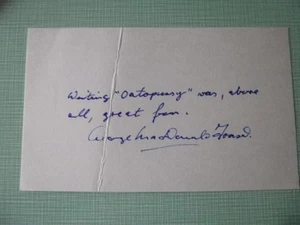 Writing "Octopussy" was, above
all, great fun.
George MacDonald Fraser.